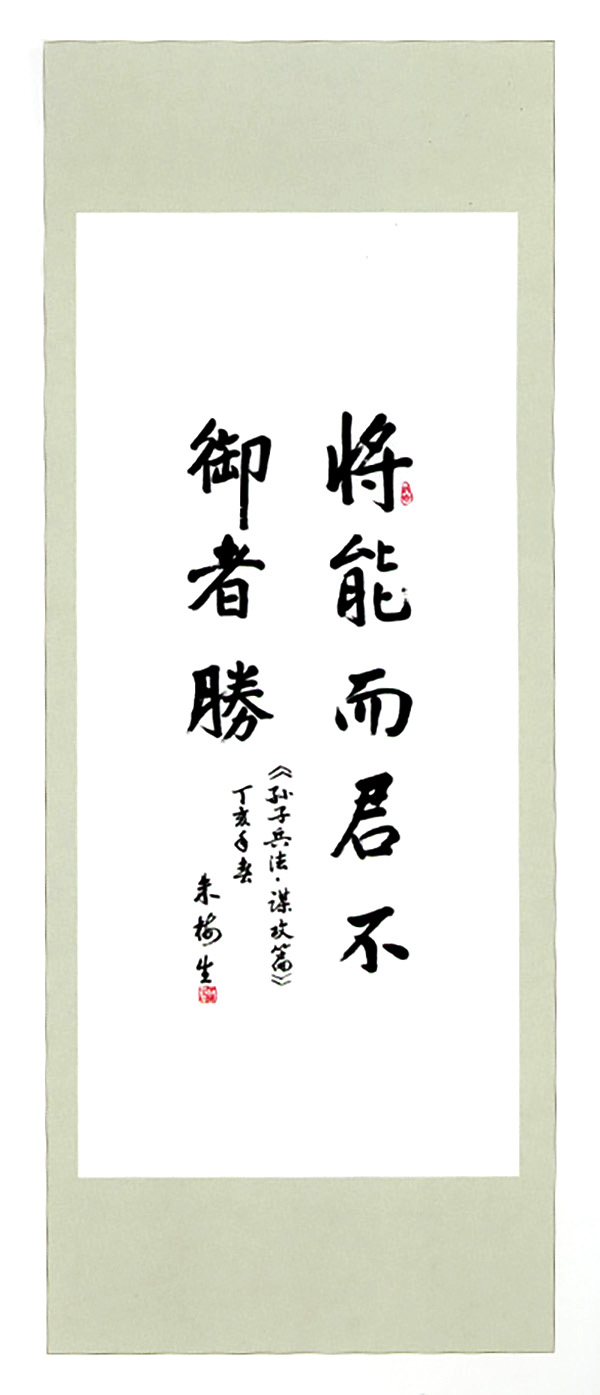 将能而君不
御者勝
《孙子兵法·谋攻篇》
丁亥年春
朱梅生